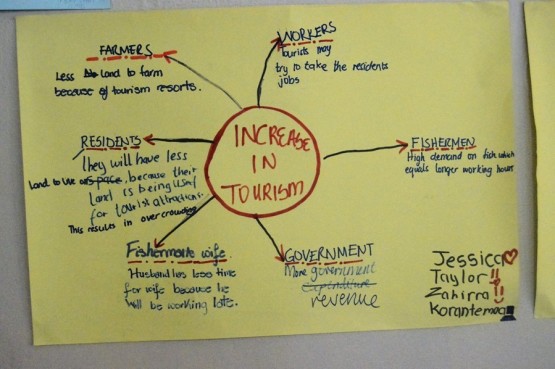 FARMERS
Less land to farm
because of tourism resorts.
WORKERS
Tourists may
try to take the residents
jobs
RESIDENTS
They will have less
land to live on space, because their
land is being used
for tourist attractions.
This results in overcrowding
INCREASE
IN
TOURISM
FISHERMEN
High demand on fish which
equals longer working hours
Fishermans wife
Husband has less time
for wife because he
will be working late.
GOVERNMENT
More government
expenditure
revenue
Jessica
Taylor!!
Zahirra!!
Korantemaa